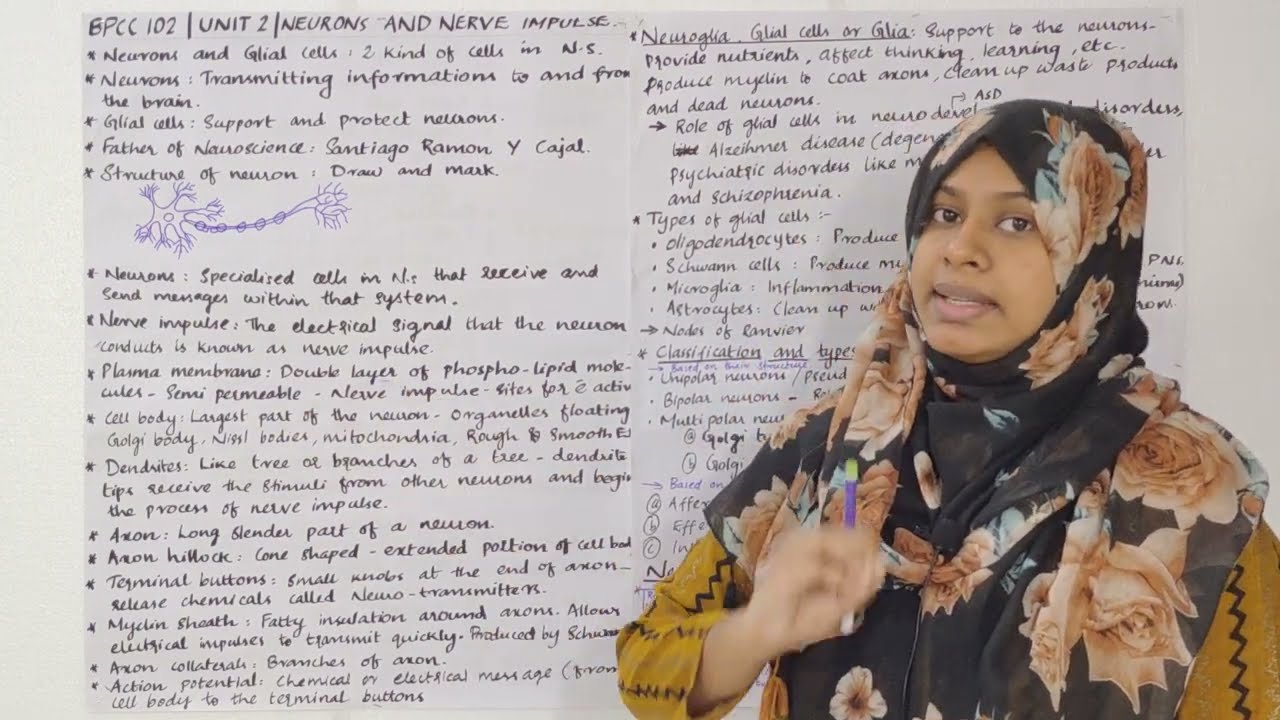 BPCC 102 | UNIT 2 | NEURONS AND NERVE IMPULSE.
* Neurons and Glial cells : 2 kind of cells in N.S.
* Neurons : Transmitting informations to and from
the brain.
* Glial cells : Support and protect neurons.
* Father of Neuroscience : Santiago Ramon Y Cajal.
* Structure of neuron : Draw and mark.
* Neurons : Specialised cells in N.S that receive and
send messages within that system.
* Nerve impulse : The electrical signal that the neuron
conducts is known as nerve impulse.
* Plasma membrane : Double layer of phospho-lipid mole-
cules - Semi permeable - Nerve impulse - sites for c̄ activ
* Cell body : Largest part of the neuron - Organelles floating
Golgi body, Nissl bodies, mitochondria, Rough & Smooth E
* Dendrites : Like tree or branches of a tree - dendrite
tips receive the stimuli from other neurons and begin
the process of nerve impulse.
* Axon : Long slender part of a neuron.
* Axon hillock : Cone shaped - extended portion of cell bod
* Terminal buttons : Small knobs at the end of axon -
release chemicals called Neuro-transmitters.
* Myelin sheath : Fatty insulation around axons. Allows
electrical impulses to transmit quickly. Produced by Schwan
* Axon collaterals : Branches of axon.
* Action potential : Chemical or electrical message (from
cell body to the terminal buttons
* Neuroglia, Glial cells or Glia : Support to the neurons-
Provide nutrients, affect thinking, learning, etc.
Produce myelin to coat axons, clean up waste products
and dead neurons.
ASD
→ Role of glial cells in neurodevel disorders,
Alzeihmer disease (degene
psychiatric disorders like m
and schizophrenia.
* Types of glial cells :-
• Oligodendrocytes : Produce
• Schwann cells : Produce my PNS.
• Microglia : Inflammation
• Astrocytes : Clean up w rons.
→ Nodes of Ranvier
* Classification and types
→ Based on their structure
• Unipolar neurons / Pseud
• Bipolar neurons -
• Multipolar neu
ⓐ Golgi ty
ⓑ Golgi
→ Based on
ⓐ Affer
ⓑ Effe
ⓒ In